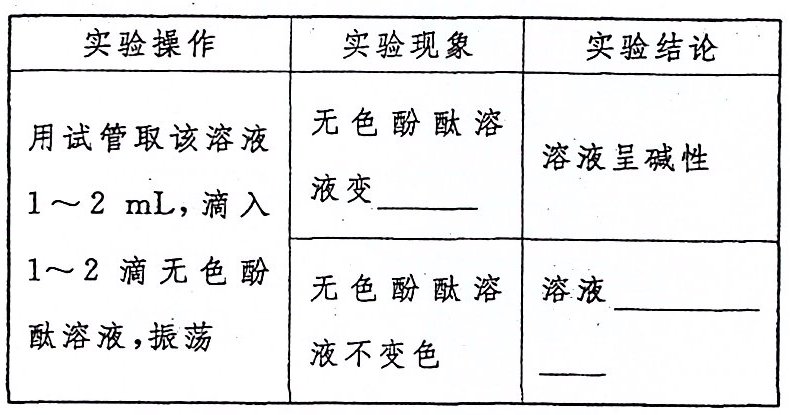 实验操作
实验现象
实验结论
用试管取该溶液
1～2 mL,滴入
1～2 滴无色酚
酞溶液,振荡
无色酚酞溶
液变______
溶液呈碱性
无色酚酞溶
液不变色
溶液__________
_____